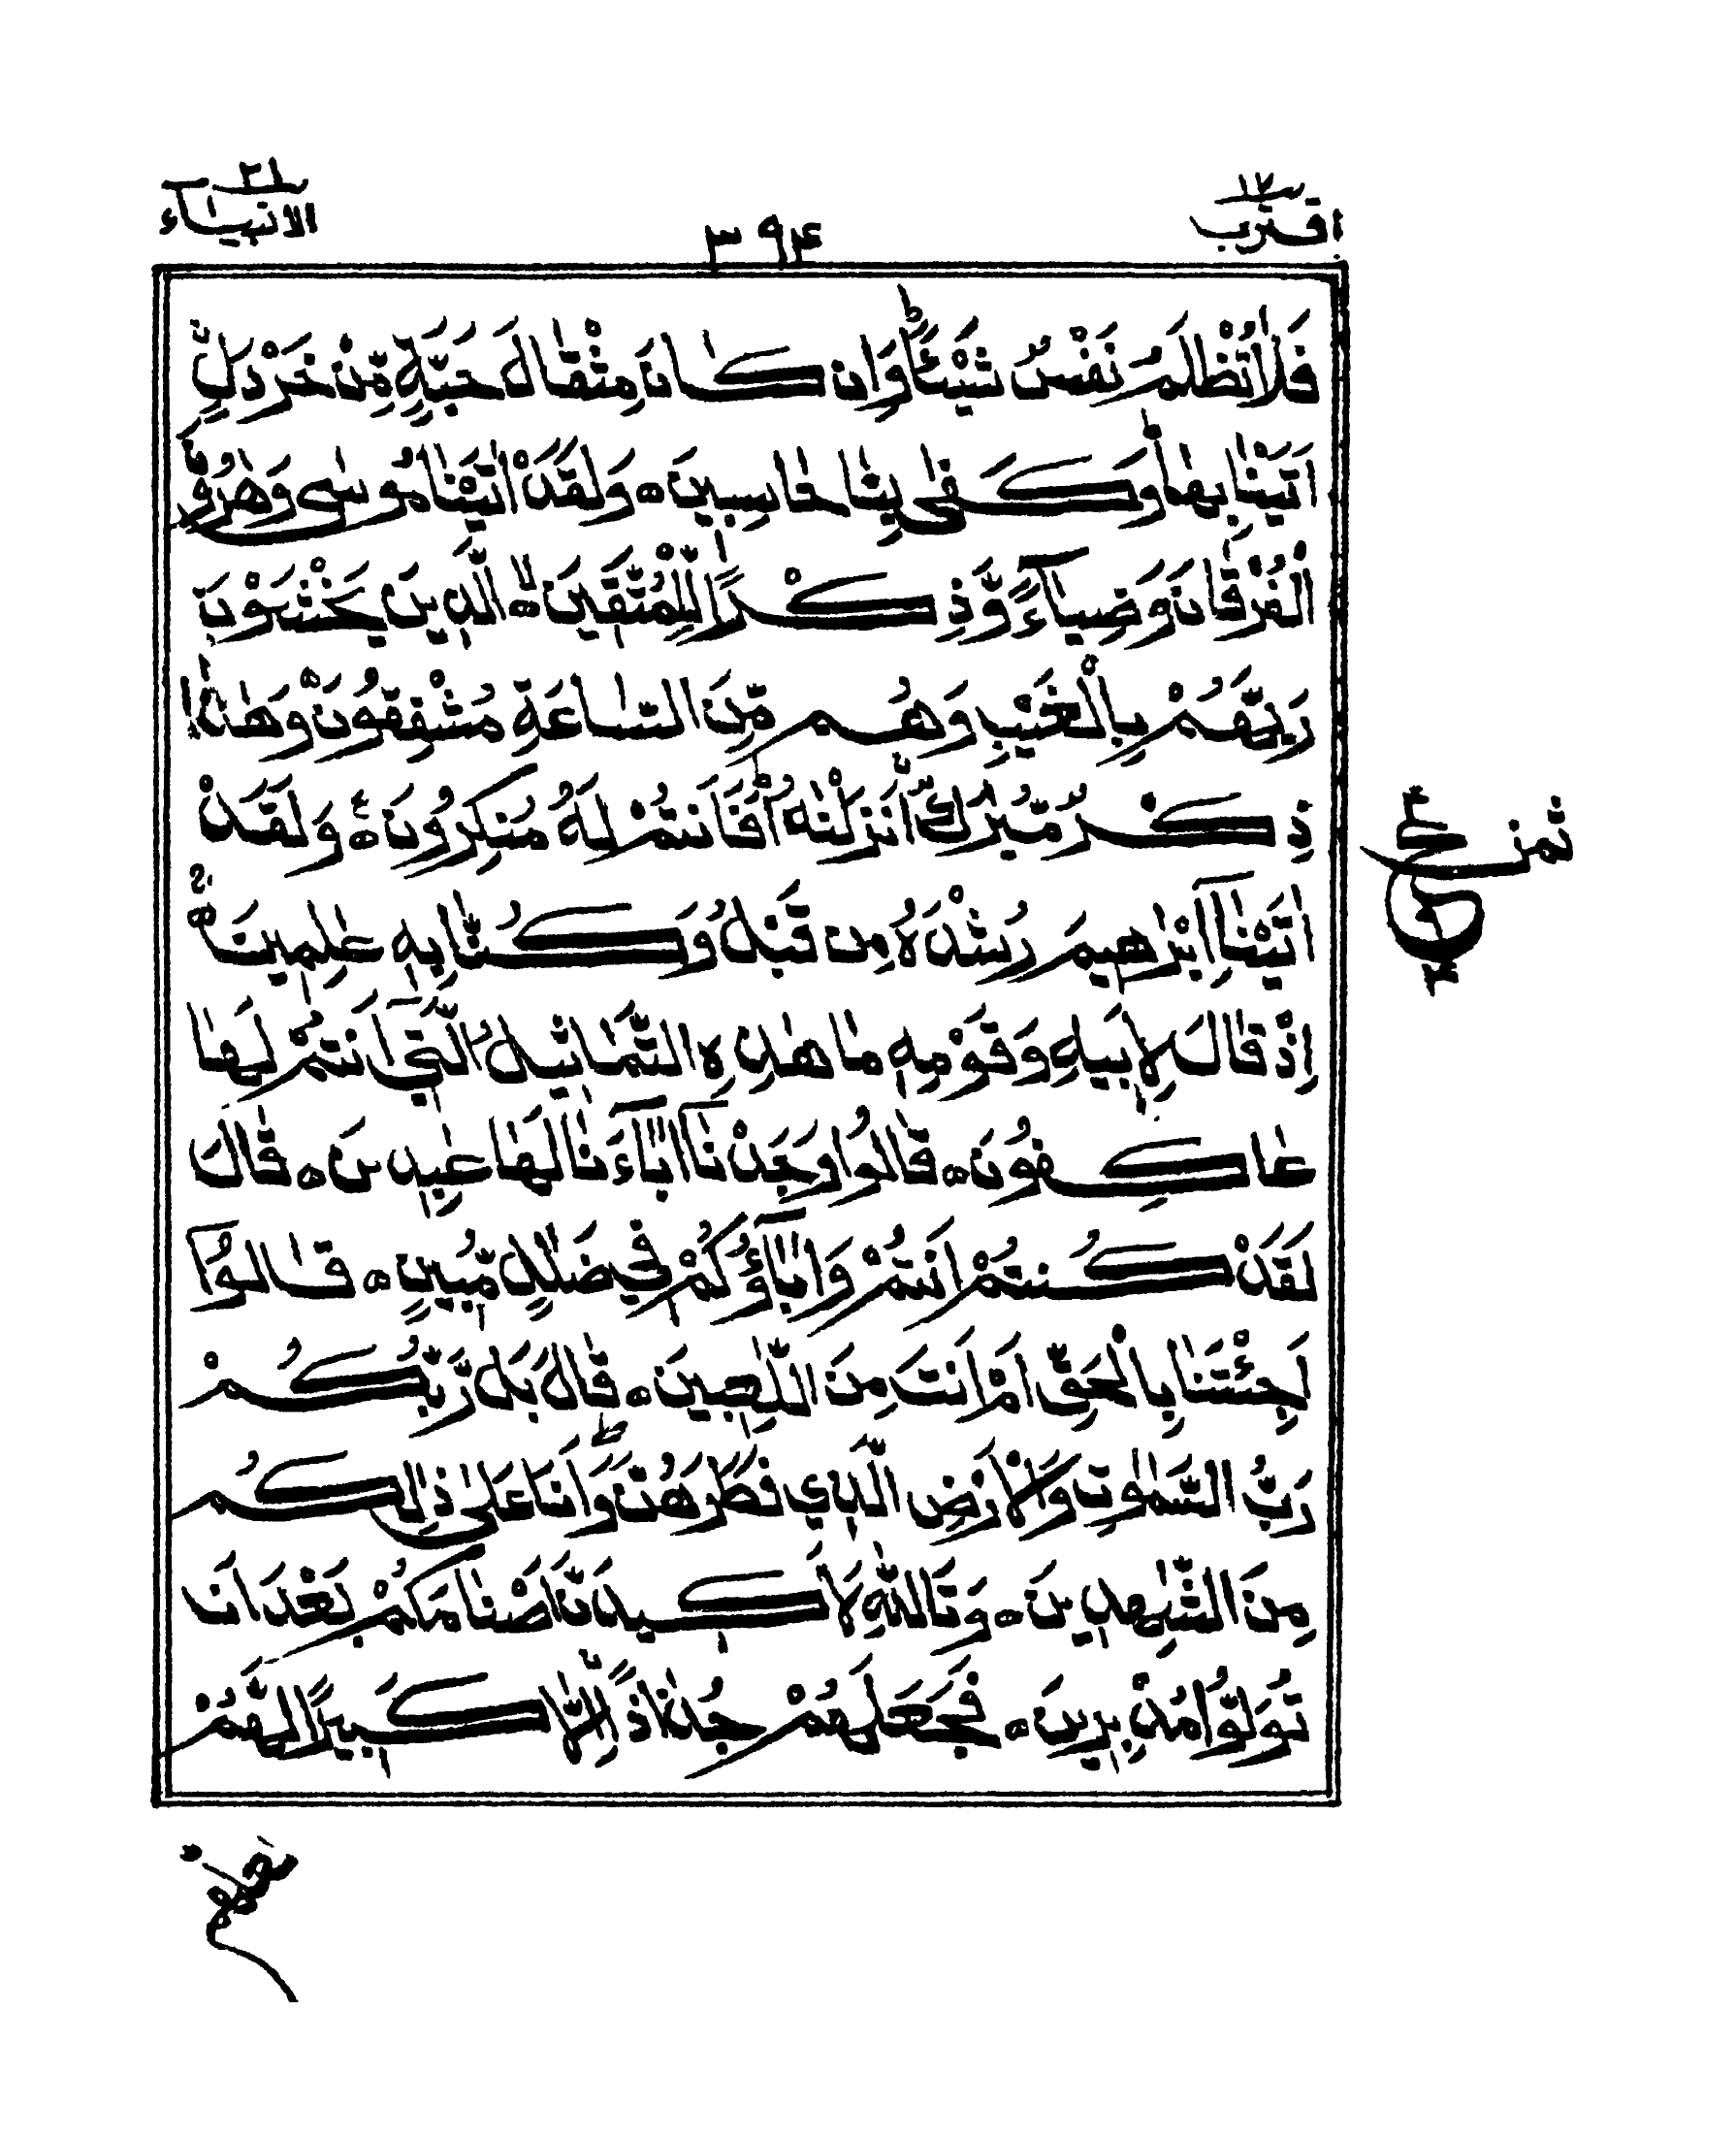 اقترب ١٧
٣٩۴
٢١ الانبياء
فَلَا تُظْلَمُ نَفْسٌ شَيْئًا ؕ وَاِن كَانَ مِثْقَالَ حَبَّةٍ مِّنْ خَرْدَلٍ
اَتَيْنَا بِهَا ؕ وَكَفٰى بِنَا حَاسِبِينَ ہ وَلَقَدْ اٰتَيْنَا مُوسٰى وَهٰرُونَ
الْفُرْقَانَ وَضِيَآءً وَّذِكْرًا لِّلْمُتَّقِينَ ہ الَّذِينَ يَخْشَوْنَ
رَبَّهُمْ بِالْغَيْبِ وَهُم مِّنَ السَّاعَةِ مُشْفِقُونَ ہ وَهٰذَا
ذِكْرٌ مُّبٰرَكٌ اَنْزَلْنٰهُ ؕ اَفَاَنتُمْ لَهُ مُنكِرُونَ ہ وَلَقَدْ
اٰتَيْنَآ اِبْرٰهِيمَ رُشْدَهُ مِن قَبْلُ وَكُنَّا بِهٖ عٰلِمِينَ ہ
اِذْ قَالَ لِاَبِيهِ وَقَوْمِهٖ مَا هٰذِهِ التَّمَاثِيلُ الَّتِيٓ اَنتُمْ لَهَا
عَاكِفُونَ ہ قَالُوا وَجَدْنَآ اٰبَآءَنَا لَهَا عٰبِدِينَ ہ قَالَ
لَقَدْ كُنتُمْ اَنتُمْ وَاٰبَآؤُكُمْ فِي ضَلٰلٍ مُّبِينٍ ہ قَالُوٓا
اَجِئْتَنَا بِالْحَقِّ اَمْ اَنتَ مِنَ اللّٰعِبِينَ ہ قَالَ بَل رَّبُّكُمْ
رَبُّ السَّمٰوٰتِ وَالْاَرْضِ الَّذِي فَطَرَهُنَّ ؕ وَاَنَا عَلٰى ذٰلِكُم
مِنَ الشّٰهِدِينَ ہ وَتَاللّٰهِ لَاَكِيدَنَّ اَصْنَامَكُمْ بَعْدَ اَن
تُوَلُّوا مُدْبِرِينَ ہ فَجَعَلَهُمْ جُذَاذًا اِلَّا كَبِيرًا لَّهُمْ
ثمن
ع